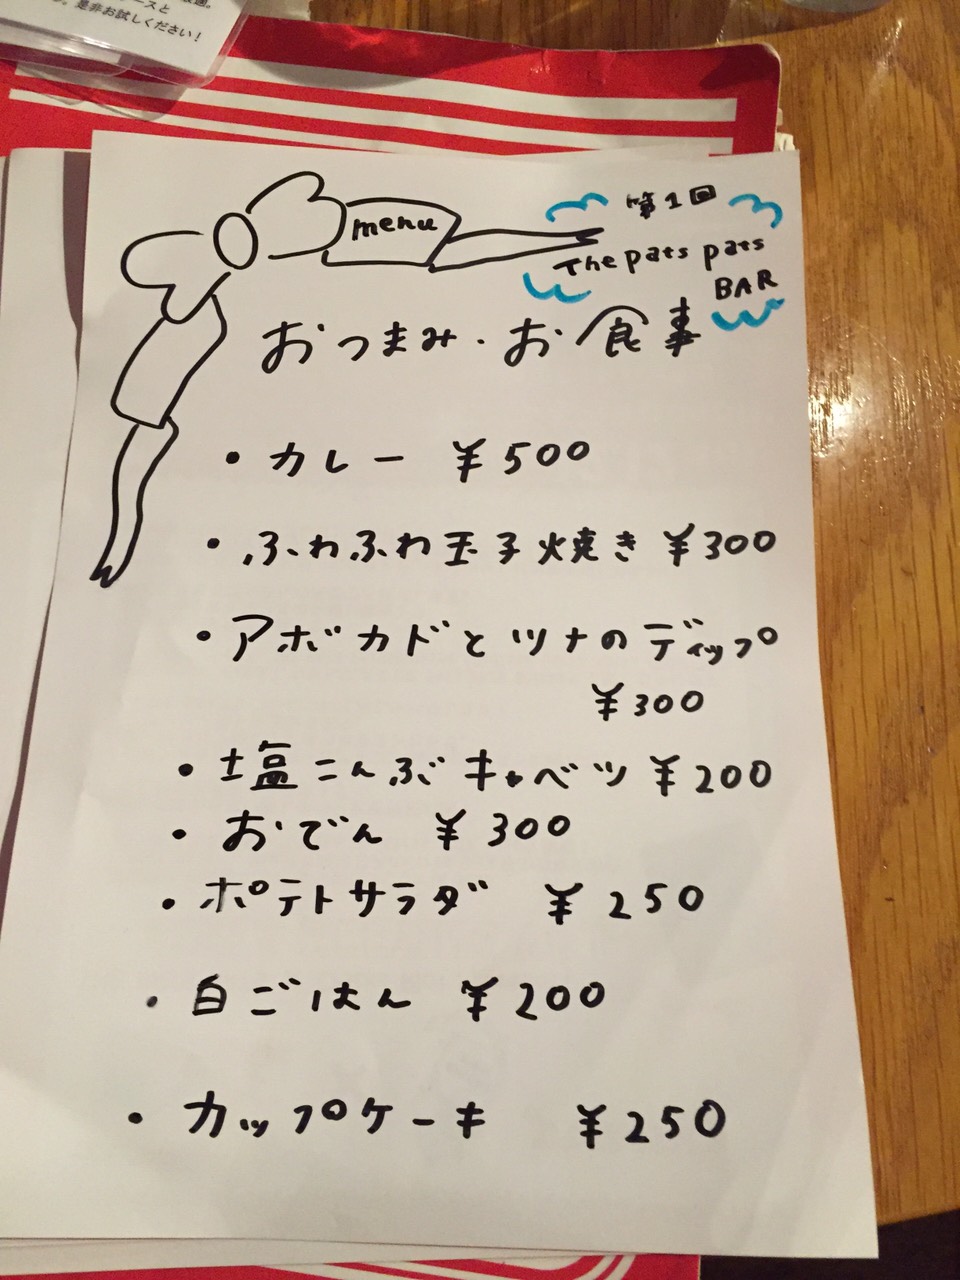 ースと
是非お試しください!
menu
第1回
The pats pats
BAR
おつまみ・お食事
・カレー ¥500
・ふわふわ玉子焼き ¥300
・アボカドとツナのディップ
¥300
・塩こんぶキャベツ ¥200
・おでん ¥300
・ポテトサラダ ¥250
・白ごはん ¥200
・カップケーキ ¥250